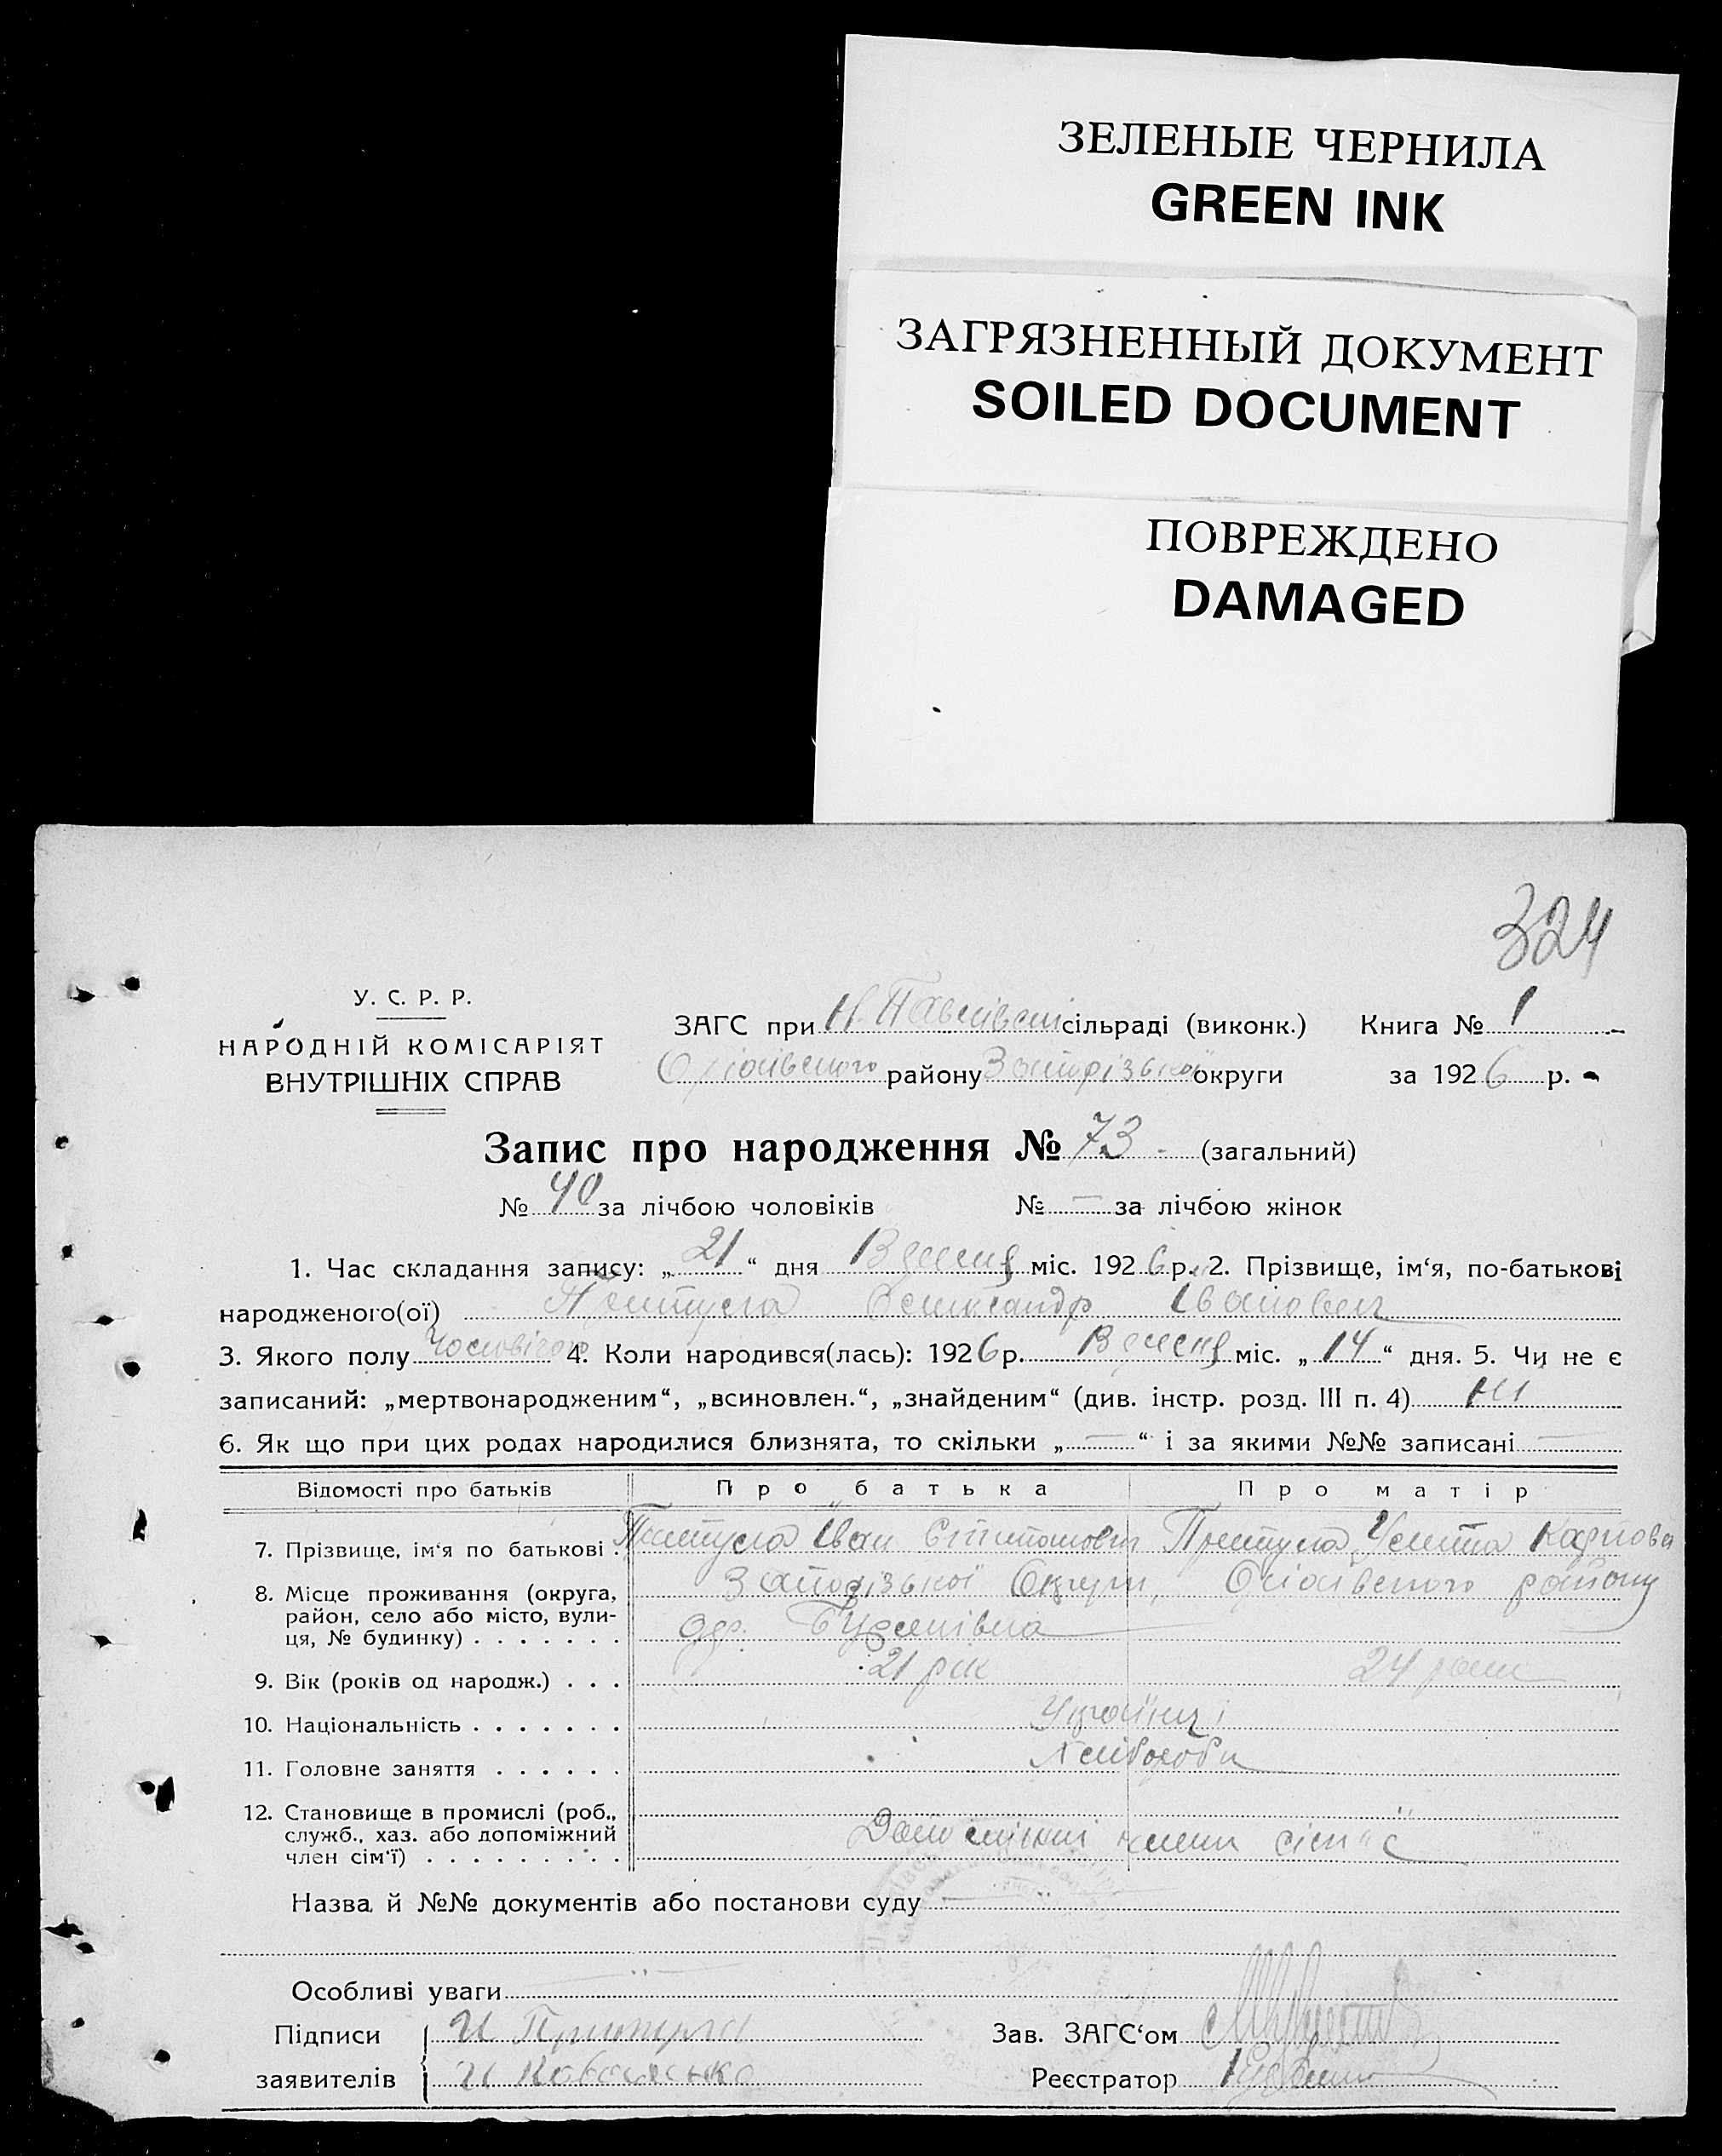 ЗЕЛЕНЫЕ ЧЕРНИЛА
GREEN INK
ЗАГРЯЗНЕННЫЙ ДОКУМЕНТ
SOILED DOCUMENT
ПОВРЕЖДЕНО
DAMAGED
324
У. С. Р. Р.
НАРОДНІЙ КОМІСАРІЯТ
ВНУТРІШНІХ СПРАВ
ЗАГС при Н. Павлівскі сільраді (виконк.) Книга № 1
району Запорізької округи за 1926 р.
Запис про народження № 73 (загальний)
№ 40 за лічбою чоловіків № — за лічбою жінок
1. Час складання запису: „21“ дня Вересня міс. 1926 р. 2. Прізвище, ім‘я, по-батькові
народженого(ої) Притула Олександр Іванович
3. Якого полу чоловічого 4. Коли народився(лась): 1926 р. Вересня міс. „14“ дня. 5. Чи не є
записаний: „мертвонародженим“, „всиновлен.“, „знайденим“ (див. інстр. розд. III п. 4) Ні
6. Як що при цих родах народилися близнята, то скільки „—“ і за якими №№ записані —
Відомості про батьків Про батька Про матір
7. Прізвище, ім‘я по батькові Притула Іван Притула Карпова
8. Місце проживання (округа, район, село або місто, вулиця, № будинку) Запорізької Округи, Оріхівського району
9. Вік (років од народж.) 21 рік 24 роки
10. Національність Українці
11. Головне заняття Хлібороби
12. Становище в промислі (роб., служб., хаз. або допоміжний член сім‘ї) члени сім'ї
Назва й №№ документів або постанови суду
Особливі уваги
Підписи И Притула Зав. ЗАГС‘ом
заявителів И Коваленко Реєстратор